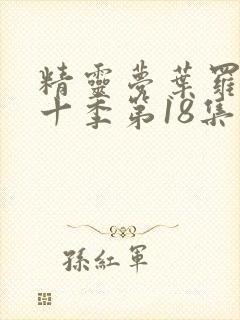 精靈夢葉羅
十季第18集
孫紅軍